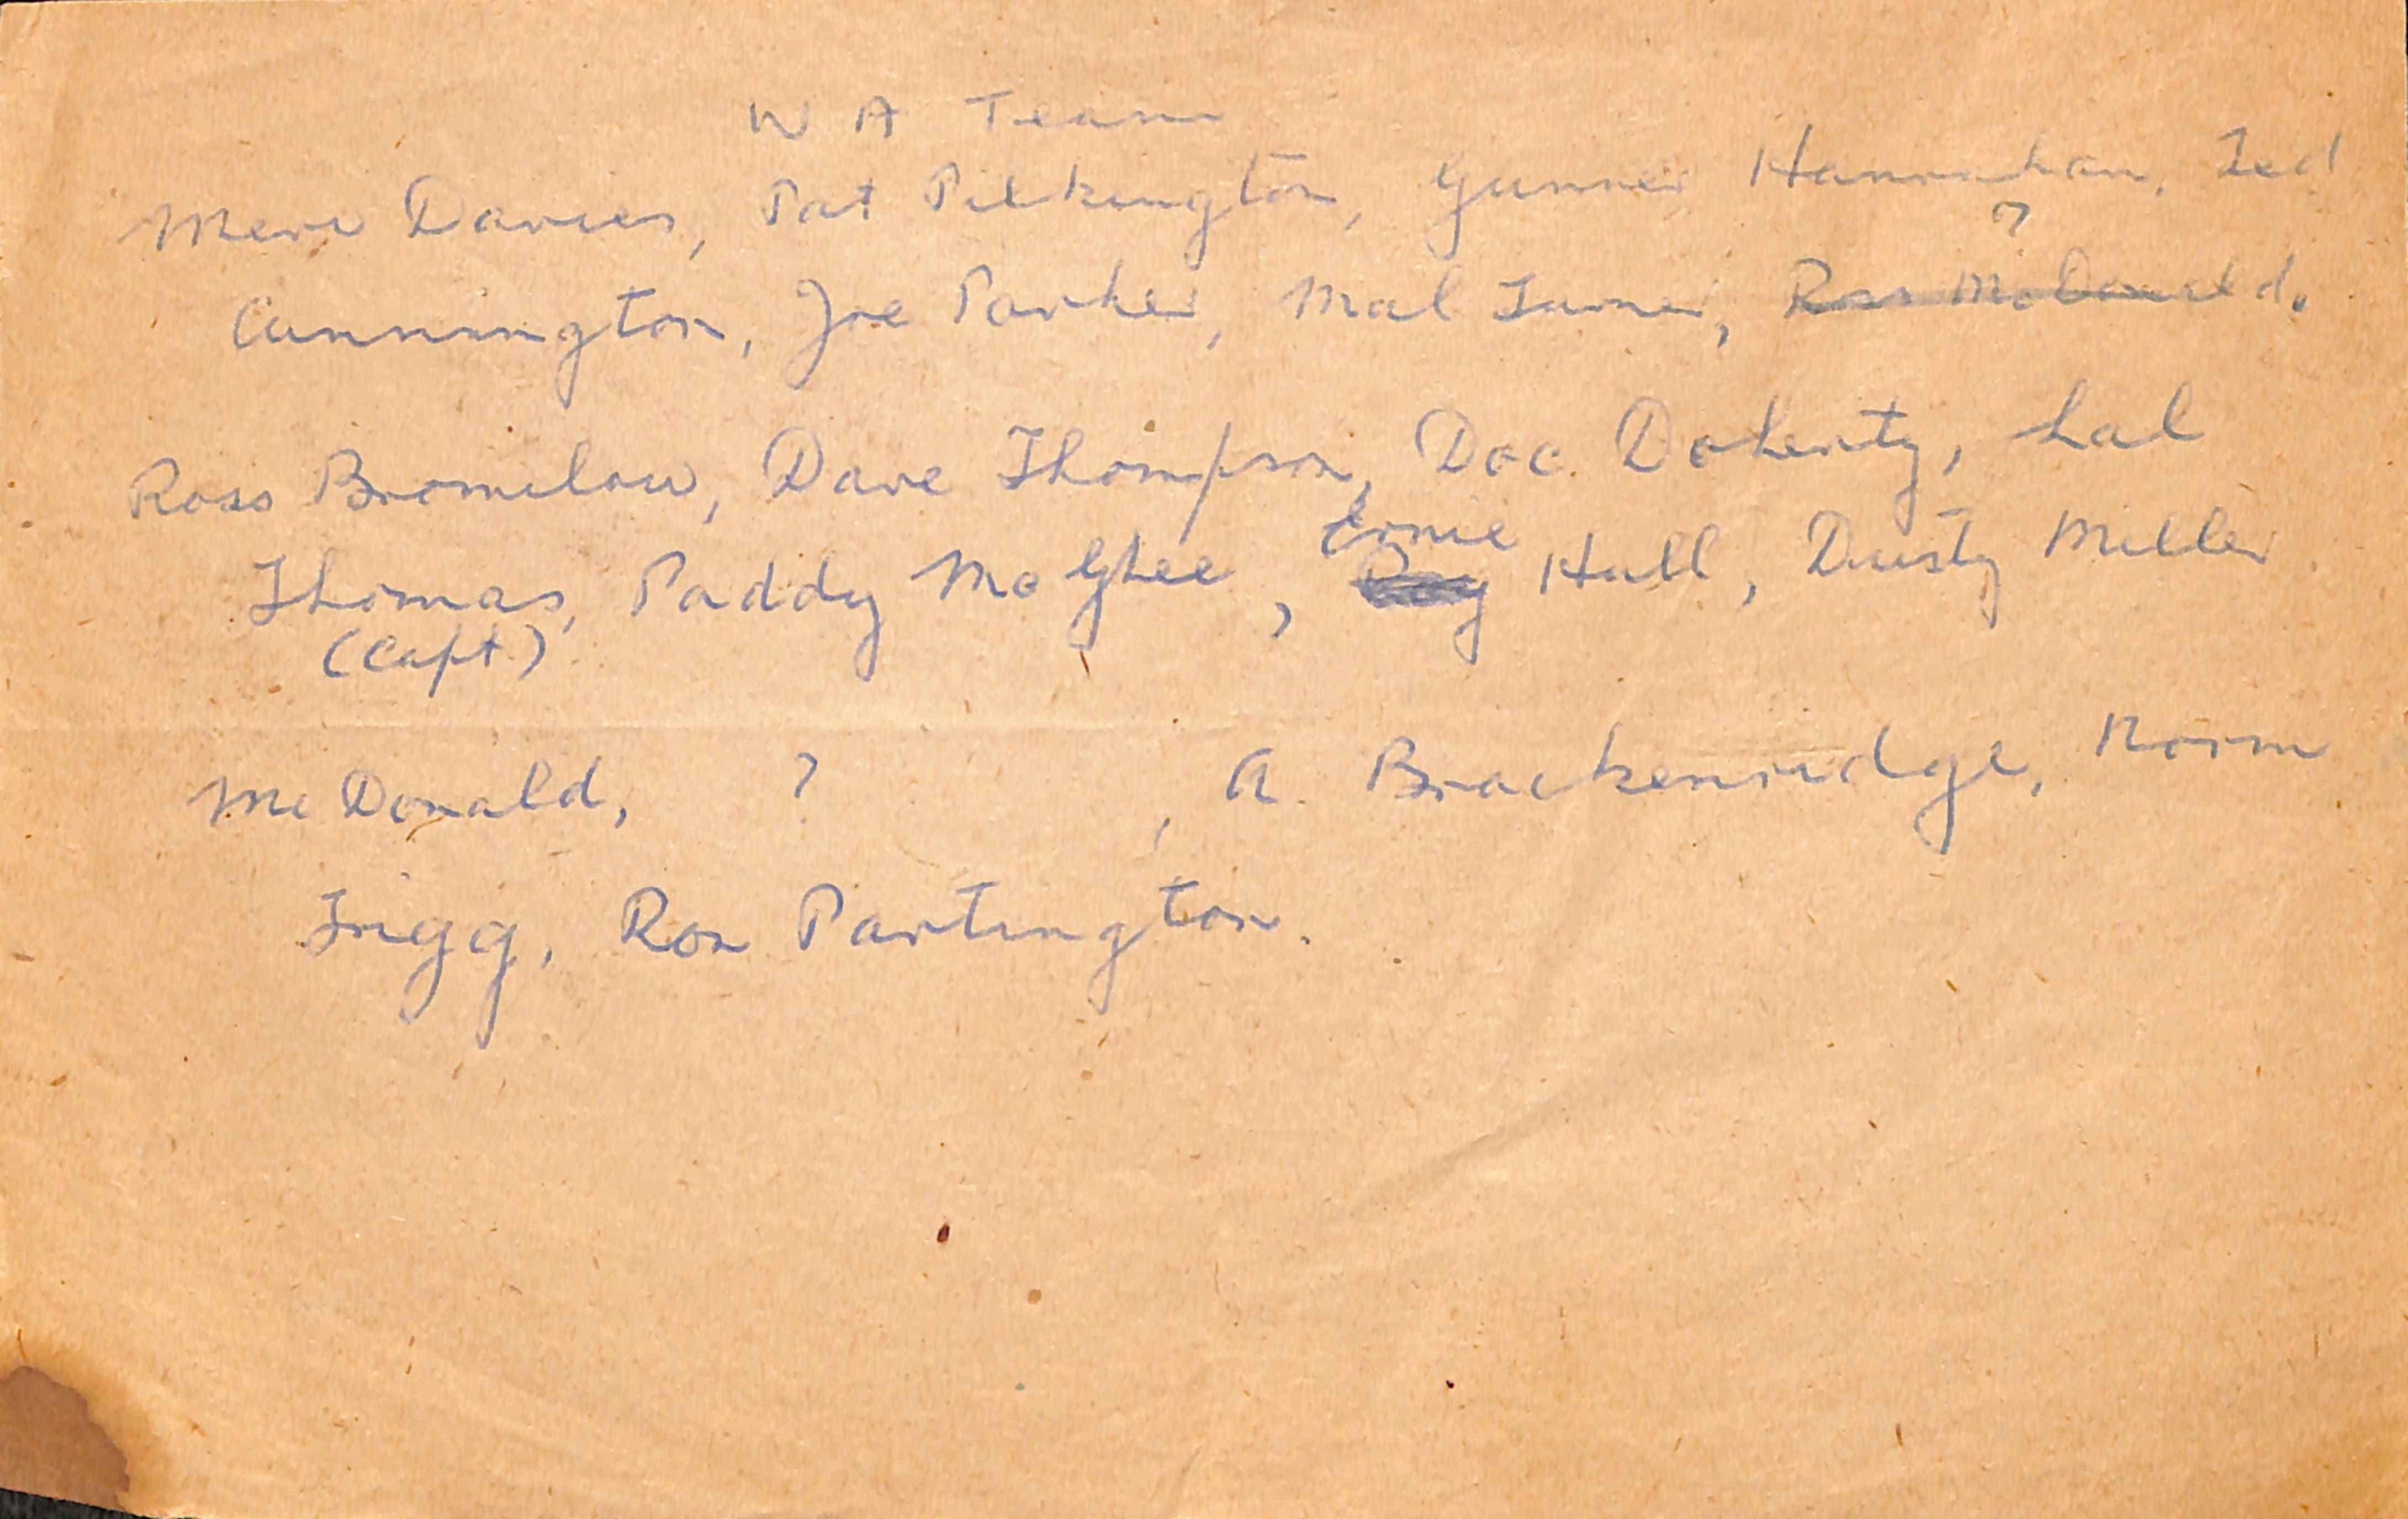 W A Team
Merv Davies, Pat Pilkington, Gunner Hanrahan, Ted
?
Cunnington, Joe Parker, Mal Turner, Ross McDonald.
Ross Bromilow, Dave Thompson, Doc Doherty, Lal
Ernie
Thomas, Paddy McGhee, Hall, Dusty Miller
(Capt)
McDonald, ? , A. Brackenridge, Norm
Trigg, Ron Partington.